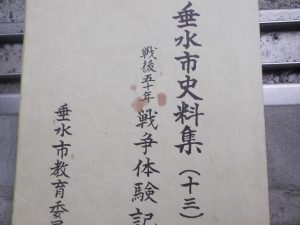 垂水市史料集(十三)
戦後五十年 戦争体験記
垂水市教育委員